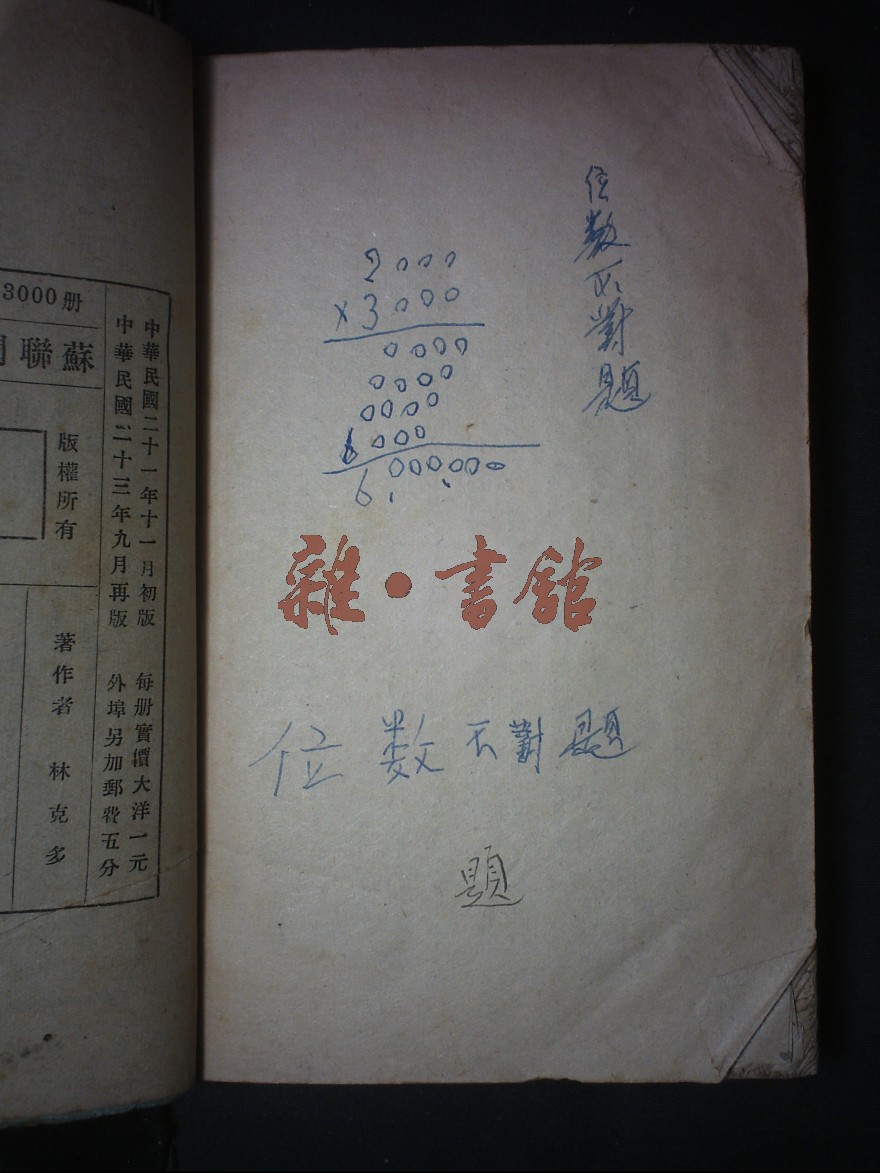 3000册
蘇聯
版權所有
著作者 林克多
中華民國二十一年十一月初版 每册實價大洋一元
中華民國二十三年九月再版 外埠另加郵費五分
位数不對題
2000
×3000
0000
0000
0000
6000
6000000
雜·書館
位数不對題
題